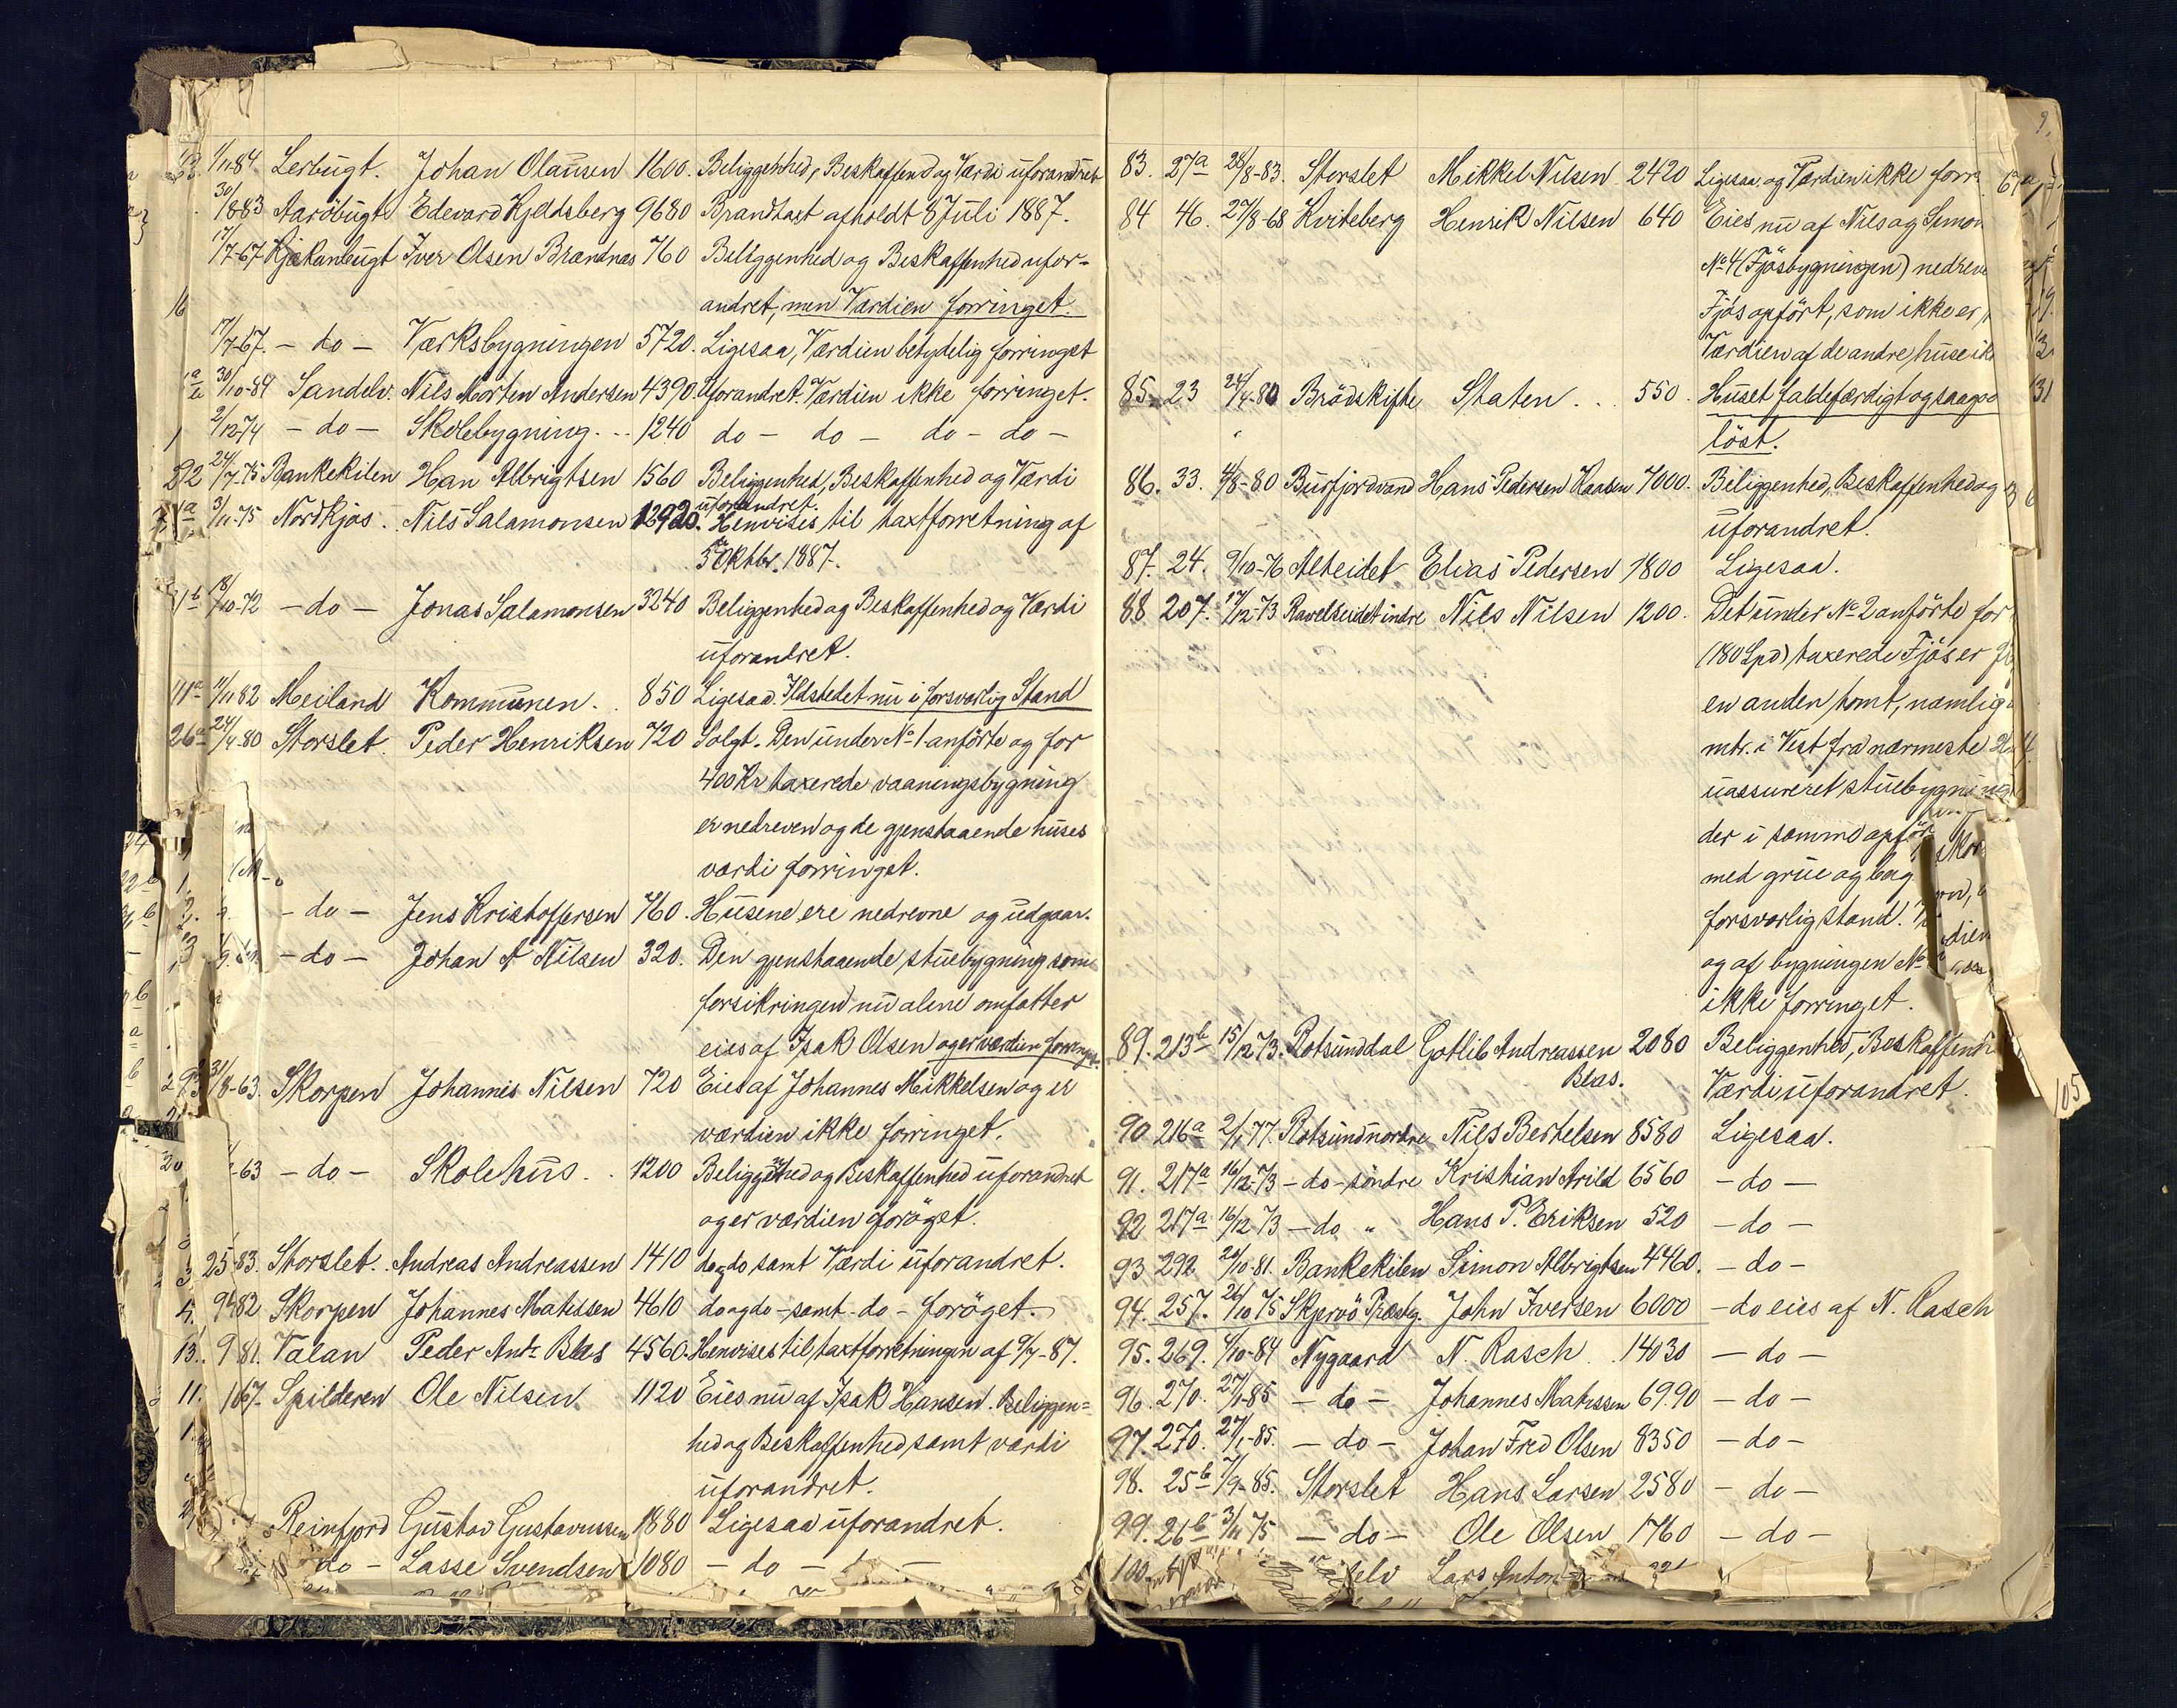 1/11-84 Lerbugt. Johan Olausen 1600. Beliggenhed, Beskaffend og Værdi uforandret
30/1883 Aaröbugt Edevard Kjeldsberg 9680 Brandtaxt afholdt 8 Juli 1887.
17/7-67 Kjækanbugt Iver Olsen Brændnæs 760 Beliggenhed og Beskaffenhed ufor-
16 andret, men Værdien forringet.
17/7-67. - do - Værksbygningen 5720. Ligesaa, Værdien betydelig forringet
30/10-84 Sandelv. Nils Morten Andersen 4390. Uforandret. Værdien ikke forringet.
1 2/12-74 - do - Skolebygning. .. 1240 do - do - do - do -
22 24/7-75 Bankekilen Han Albrigtsen 1560 Beliggenhed, Beskaffenhed og Værdi
uforandret.
3/11-75 Nordkjos. Nils Salamonsen 12920. Henvises til taxtforretning af
5 Oktbr. 1887.
18/10-72 - do - Jonas Salamonsen 3240 Beliggenhed og Beskaffenhed og Værdi
uforandret.
11a 11/11 82 Meiland Kommunen. . 850 Ligesaa. Ildstedet nu i forsvarlig Stand
26a 24/4-80 Storslet. Peder Henriksen 720 Solgt. Den under No 1 anförte og for
400 Kr taxerede vaaningsbygning
er nedreven og de gjenstaaende huses
værdi forringet.
- do - Jens Kristoffersen 760. Husene ere nedrevne og udgaar.
- do - Johan A Nilsen 320. Den gjenstaaende stuebygning som
forsikringen nu alene omfatter
eies af Isak Olsen og er værdien forringet.
31/8-63. Skorpen Johannes Nilsen 720 Eies af Johannes Mikkelsen og er
værdien ikke forringet.
-63 - do - Skolehus. . 1200 Beliggenhed og Beskaffenhed uforandret
og er værdien foröget.
25-83. Storslet. Andreas Andreassen 1410 do og do samt Værdi uforandret.
9-82 Skorpen Johannes Matissen 4610 do og do - samt - do - foröget.
13. 9 81. Valan Peder Andr Blæs 4560. Henvises til taxtforretningen af 9/7-87.
11. 167. Spilderen Ole Nilsen. 1120 Eies nu af Isak Hansen. Beliggen=
hed og Beskaffenhed samt værdi
uforandret.
Reinfjord Gustav Gustavussen 1880 Ligesaa uforandret.
do - Lasse Svendsen 1080 - do -
83. 27a 28/8-83. Storslet Mikkel Nilsen 2420 Ligesaa og Værdien ikke forr
84 46. 27/8-68 Kviteberg Henrik Nilsen 640 Eies nu af Nils og Simon
No 4 (Fjösbygningen) nedreve
Fjös opfört, som ikke er
Værdien af de andre huse ik
85. 23 24/4-80 Brödskifte Staten . .. 550. Huset faldefærdigt og saago
löst.
86. 33. 4/8-80 Burfjordvand Hans Pedersen Kaasen 7000. Beliggenhed, Beskaffenhed og
uforandret.
87. 24. 9/10-76 Alteidet Elias Pedersen 1800 Ligesaa.
88 207. 17/12-73 Ravelseidet indre Nils Nilsen 1200. Det under No 2 anförte for
(180 Spd) taxerede Fjös er
en anden tomt, nemlig
mtr. i Vest fra nærmeste
uassureret stuebygning
der i samme opför
med grue og bag
forsvarlig stand.
og af bygningen No
ikke forringet.
89. 213b 15/12 73. Rotsunddal Gotlib Andreassen 2080 Beliggenhed, Beskaffenh
Blæs. Værdi uforandret.
105
90 216a 2/1-77. Rotsund nordre Nils Bertelsen 8580 Ligesaa.
91. 217a 16/12-73 - do - söndre Kristian Arild 6560 - do -
92 217a 16/12 73 - do " Hans P. Eriksen 520 - do -
93 292 20/10-81. Bankekilen Simon Albrigtsen 4460. - do -
94. 257. 26/10 75 Skjervö Præstg. John Iversen 6000 - do eies af N. Rasch
95. 269. 6/10-84 Nygaard N. Rasch. . 14030 - do -
96. 270. 27/1-85 - do - Johannes Matissen 69.90 - do -
97. 270. 27/1-85. - do - Johan Fred Olsen 8350 - do -
98. 25b 7/9-85. Storslet Hans Larsen 2580 - do -
99. 26b 3/11 75 - do - Ole Olsen 1760 - do -
100. elv Lars Anton